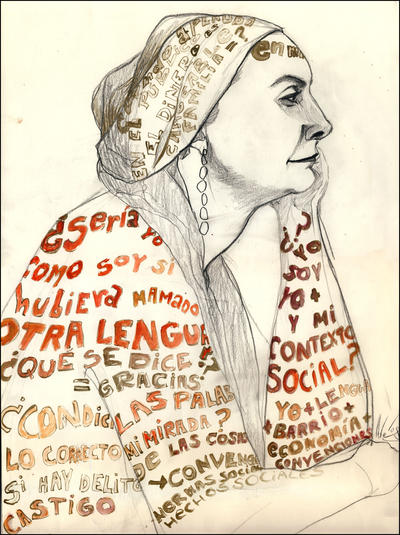 EN EL PUEBLO
EN EL DINERO
en mi
¿sería yo
como soy si
hubiera MAMADO
OTRA LENGUA
¿QUÉ SE DICE?
= GRACIAS
¿CONDICI
LAS PALAB
MI MIRADA?
LO CORRECTO
DE LAS COSAS
SI HAY DELITO
CASTIGO
→ CONVENC
NORMAS SOCIAL
HECHOS SOCIALES
¿YO
SOY
YO +
Y MI
CONTEXTO
SOCIAL?
YO + LENGUA
+ BARRIO +
ECONOMÍA +
CONVENCIONES